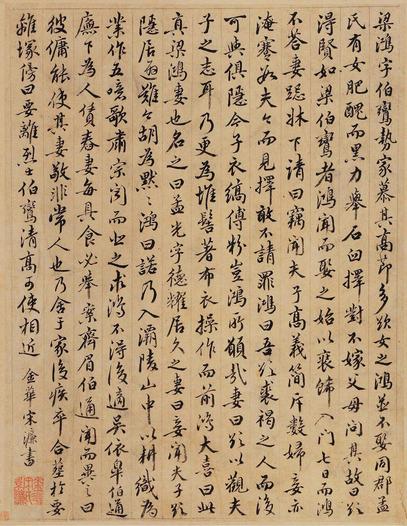 梁鴻字伯鸞勢家慕其高節多欲女之鴻並不娶同郡孟
氏有女肥醜而黑力舉石臼擇對不嫁父母問其故曰欲
得賢如梁伯鸞者鴻聞而娶之始以裝飾入門七日而鴻
不答妻跪牀下請曰竊聞夫子高義簡斥數婦妾亦
淹蹇數夫今而見擇敢不請罪鴻曰吾欲裘褐之人而後
可與俱隱今子衣縞傅粉豈鴻所願哉妻曰欲以觀夫
子之志耳乃更為椎髻著布衣操作而前鴻大喜曰此
真梁鴻妻也名之曰孟光字德耀居久之妻曰妾聞夫子欲
隱居避難今胡為默默鴻曰諾乃入灞陵山中以耕織為
業作五噫歌肅宗聞而非之求鴻不得後適吳依皋伯通
廡下為人賃舂妻每具食必舉案齊眉伯通聞而異之曰
彼傭能使其妻敬非常人也乃舍于家後疾卒合葬於要
離塚傍曰要離烈士伯鸞清高可使相近 金華宋濂書